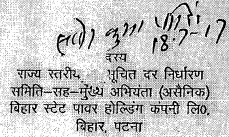 18-7-17
सदस्य
राज्य स्तरीय, सूचित दर निर्धारण
समिति-सह-मुख्य अभियंता (असैनिक)
बिहार स्टेट पावर होल्डिंग कंपनी लि0,
बिहार, पटना